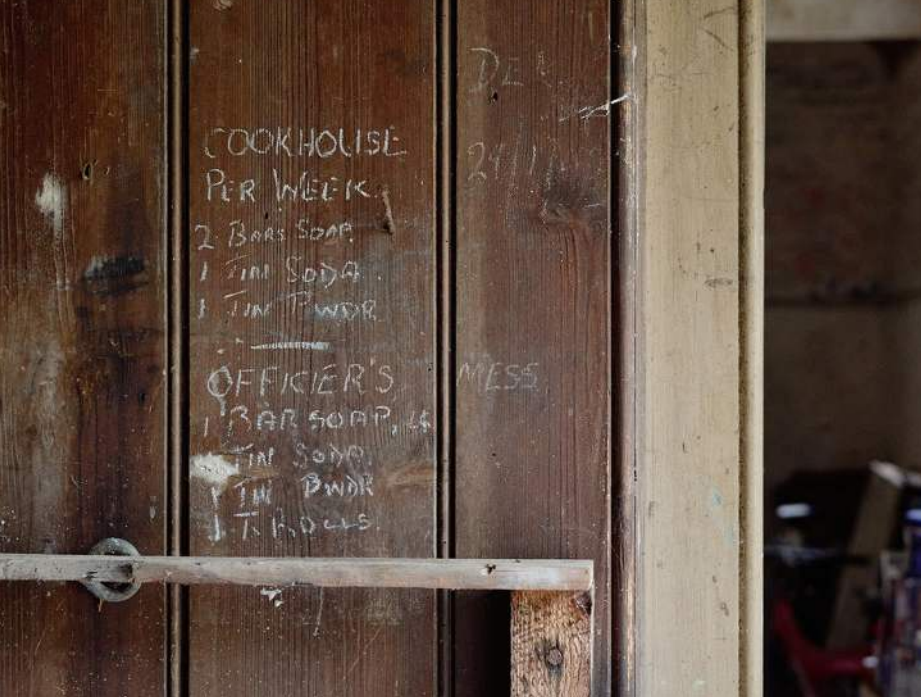 COOKHOUSE
PER WEEK
2 BARS SOAP
1 TIN SODA.
1 TIN PWDR
OFFICIER'S MESS
1 BAR SOAP,
TIN SODA.
1 TIN PWDR
1 T ROLLS.